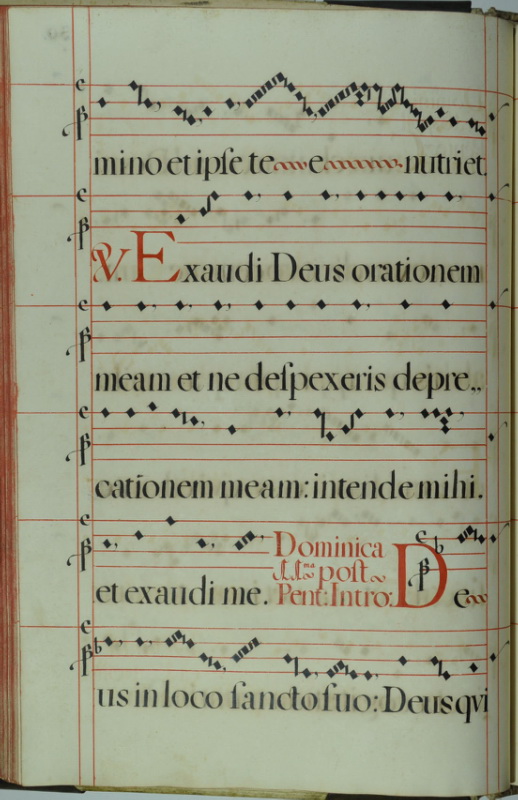 mino et ipſe te e nutriet
V. Exaudi Deus orationem
meam et ne deſpexeris depre..
cationem meam: intende mihi.
et exaudi me. Dominica
post
Pent: Intro: De
us in loco ſancto ſuo: Deus qvi